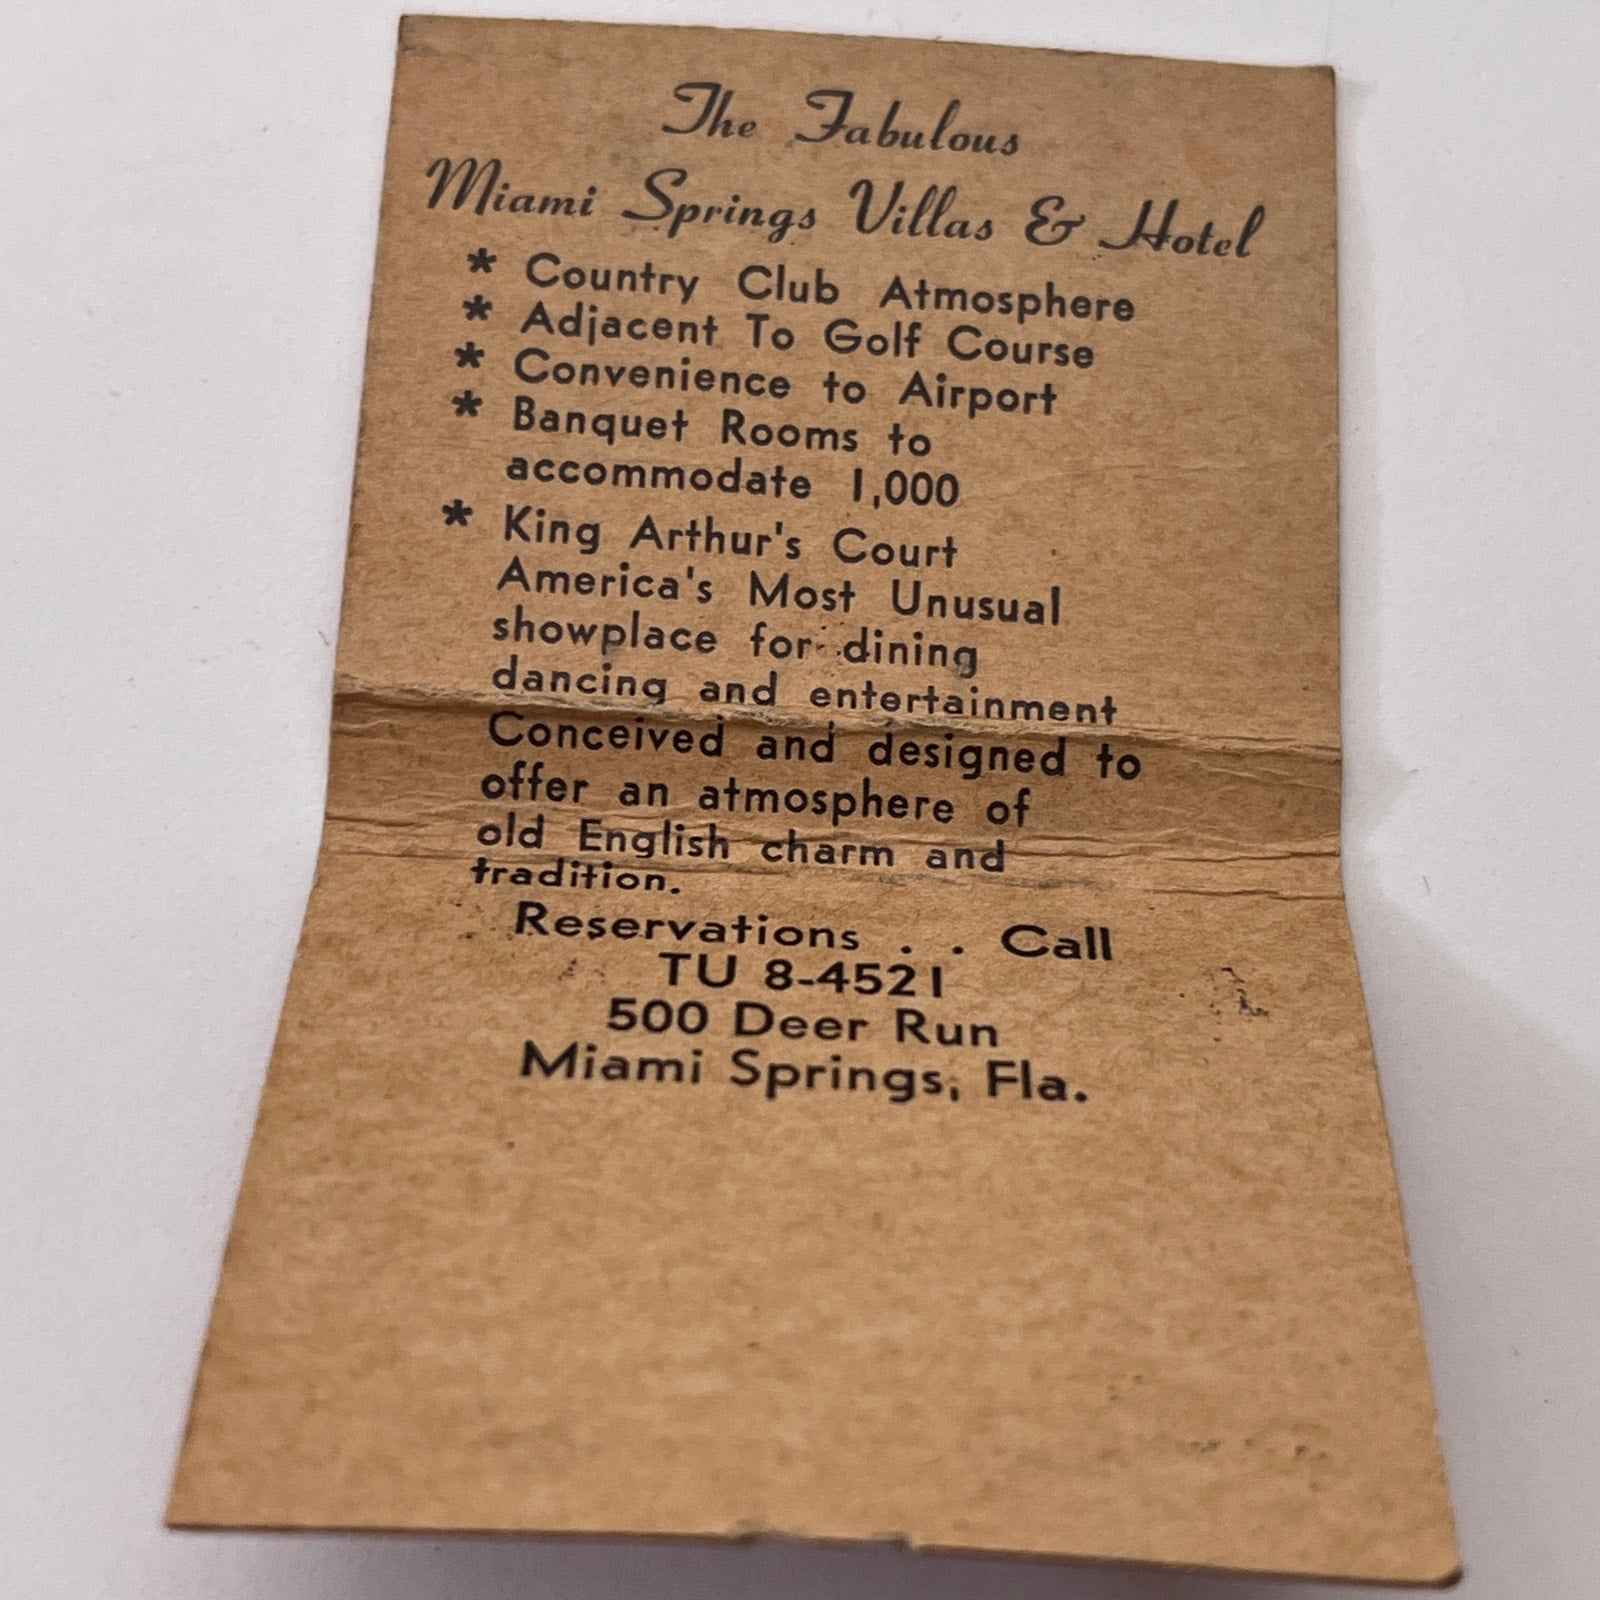 The Fabulous
Miami Springs Villas & Hotel
* Country Club Atmosphere
* Adjacent To Golf Course
* Convenience to Airport
* Banquet Rooms to
accommodate 1,000
* King Arthur's Court
America's Most Unusual
showplace for dining
dancing and entertainment
Conceived and designed to
offer an atmosphere of
old English charm and
tradition.
Reservations . . Call
TU 8-4521
500 Deer Run
Miami Springs, Fla.